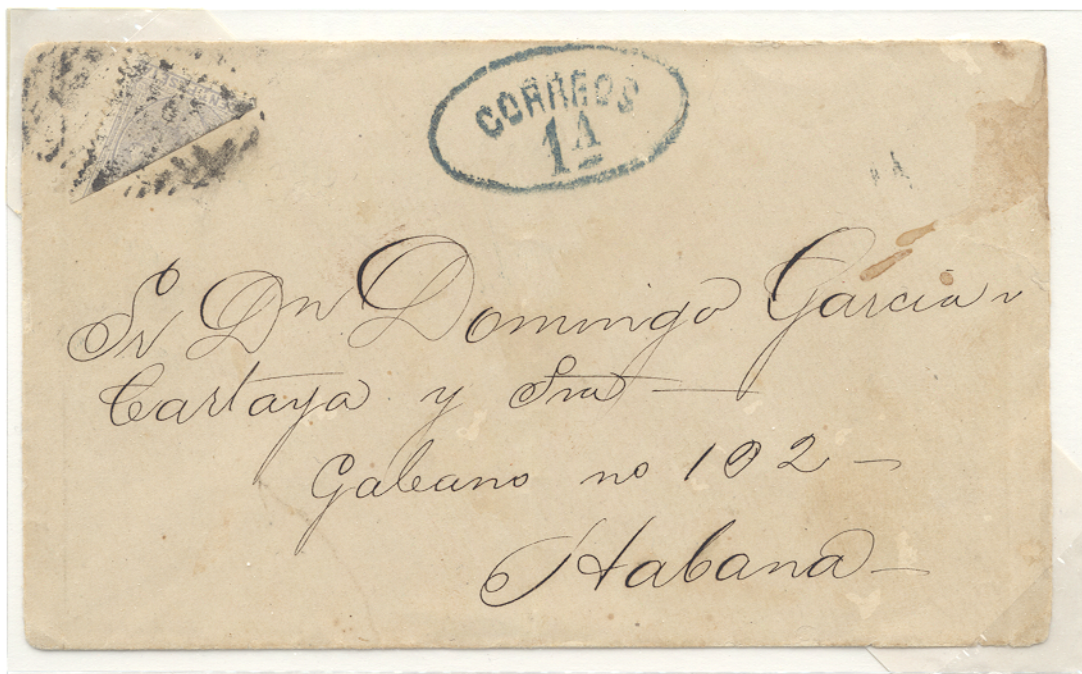 CORREOS
1A
Sr Dn Domingo Garcia
Cartaya y Sra
Galeano no 102
Habana